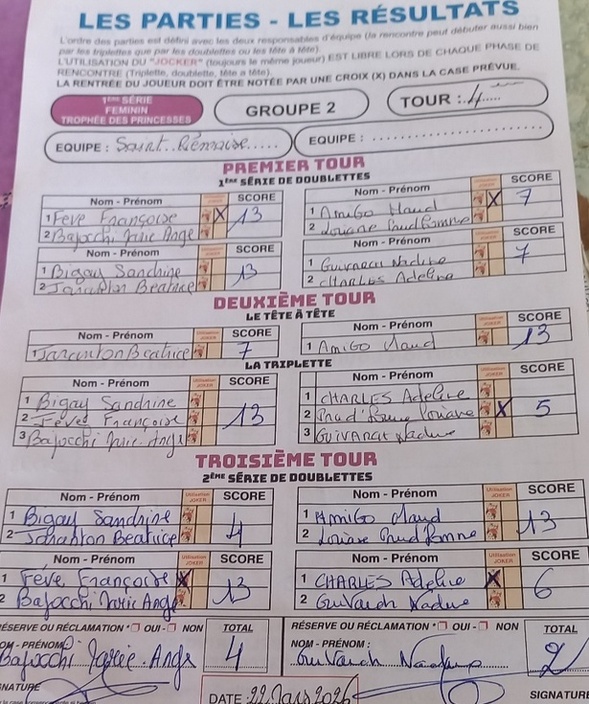 LES PARTIES - LES RÉSULTATS
L'ordre des parties est défini avec les deux responsables d'équipe (la rencontre peut débuter aussi bien
par les triplettes que par les doublettes ou les tête à tête)
L'UTILISATION DU "JOCKER" (toujours le même joueur) EST LIBRE LORS DE CHAQUE PHASE DE
RENCONTRE (Triplette, doublette, tête a tête).
LA RENTRÉE DU JOUEUR DOIT ÊTRE NOTÉE PAR UNE CROIX (X) DANS LA CASE PRÉVUE.
1ÈRE SÉRIE
FEMININ
TROPHÉE DES PRINCESSES
GROUPE 2
TOUR : 4
EQUIPE : Saint
EQUIPE :
PREMIER TOUR
1ÈRE SÉRIE DE DOUBLETTES
Nom - Prénom SCORE Nom - Prénom SCORE
1 Feve Françoise X 13 1 Amigo Maud X 7
2 Bajocchi Marie Ange 2 Louane Prud'homme
Nom - Prénom SCORE Nom - Prénom SCORE
1 Bigay Sandrine 13 1 Nadine 7
2 Beatrice 2 CHARLES Adeline
DEUXIÈME TOUR
LE TÊTE À TÊTE
Nom - Prénom Utilisation JOKER SCORE Nom - Prénom Utilisation JOKER SCORE
1 Beatrice 7 1 Amigo Maud 13
LA TRIPLETTE
Nom - Prénom Utilisation JOKER SCORE Nom - Prénom Utilisation JOKER SCORE
1 Bigay Sandrine 13 1 CHARLES Adeline 5
2 Feves Françoise 2 Prud'homme Louane X
3 Bajocchi Marie Ange 3 GUIVARCH Nadine
TROISIÈME TOUR
2ÈME SÉRIE DE DOUBLETTES
Nom - Prénom Utilisation JOKER SCORE Nom - Prénom Utilisation JOKER SCORE
1 Bigay Sandrine 4 1 AMIGO Maud 13
2 Beatrice 2 Louane Prud'homme
Nom - Prénom Utilisation JOKER SCORE Nom - Prénom Utilisation JOKER SCORE
1 Feve Françoise X 13 1 CHARLES Adeline X 6
2 Bajocchi Marie Ange 2 Guivarch Nadine
RÉSERVE OU RÉCLAMATION * OUI - NON TOTAL RÉSERVE OU RÉCLAMATION * OUI - NON TOTAL
NOM - PRÉNOM : Bajocchi Marie Ange 4 NOM - PRÉNOM : Guivarch Nadine 2
SIGNATURE DATE : 22 Mars 2026 SIGNATURE